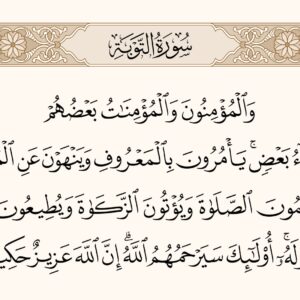 سُورَةُ التَّوْبَةِ
وَالْمُؤْمِنُونَ وَالْمُؤْمِنَاتُ بَعْضُهُمْ
بَعْضٍ ۚ يَأْمُرُونَ بِالْمَعْرُوفِ وَيَنْهَوْنَ عَنِ
الصَّلَوٰةَ وَيُؤْتُونَ الزَّكَوٰةَ وَيُطِيعُونَ
أُو۟لَٰٓئِكَ سَيَرْحَمُهُمُ اللَّهُ ۗ إِنَّ اللَّهَ عَزِيزٌ